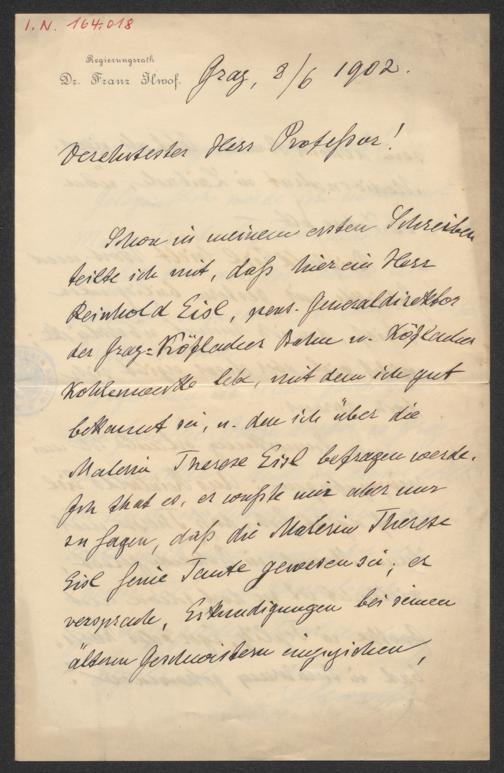 I. N. 164.018
Regierungsrath
Dr. Franz Ilwof.
Graz, 8/6 1902.
Verehrtester Herr Professor!
Schon in meinem ersten Schreiben
teilte ich mit, daß hier ein Herr
Reinhold Eisl, pens. Generaldirektor
der Graz=Köflacher Bahn u. Köflacher
Kohlenwerke lebe, mit dem ich gut
bekannt sei, u. den ich über die
Malerin Therese Eisl befragen werde.
Ich that es, er wußte mir aber nur
zu sagen, daß die Malerin Therese
Eisl seine Tante gewesen sei; er
versprach, Erkundigungen bei seinen
älteren Geschwistern einzuziehen,